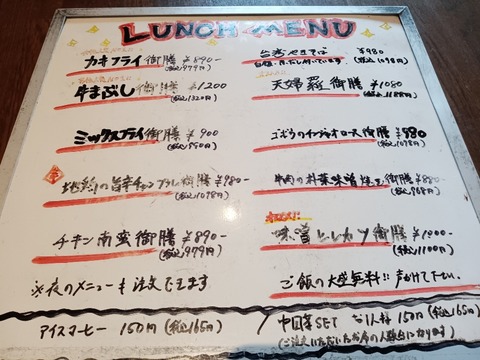 LUNCH MENU
カキフライ御膳 ¥890-
(税込979円)
牛まぶし御膳 ¥1200
(税込1320円)
ミックスフライ御膳 ¥900
(税込990円)
御膳 ¥980-
(税込1078円)
チキン南蛮御膳 ¥890-
(税込979円)
※夜のメニューも注文できます
アイスコーヒー 150円 (税込165円)
台湾まぜそば ¥980
(税込1078円)
天婦羅御膳 ¥1080
(税込1188円)
ゴボウのチンジャオロース御膳 ¥980
(税込1078円)
牛肉の朴葉味噌焼き ¥880-
(税込968円)
味噌ヒレカツ御膳 ¥1000-
(税込1100円)
ご飯の大盛無料!! 声かけて下さい。
SET お1人様 150円 (税込165円)
(ご注文いただいたお食事の人数分になります)